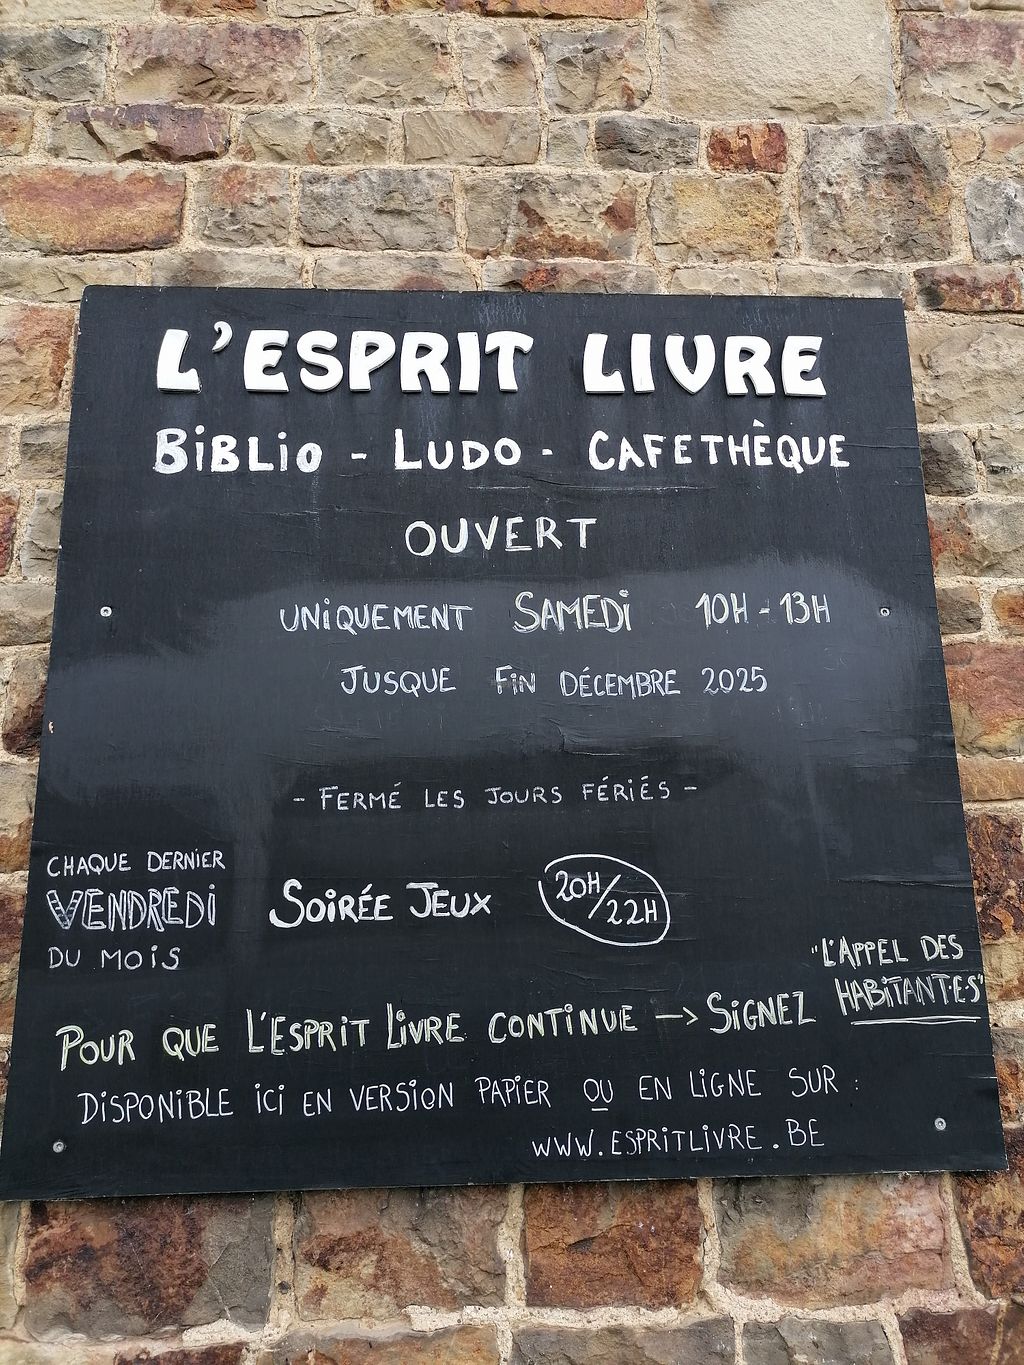 L'ESPRIT LIVRE
BIBLIO - LUDO - CAFETHÈQUE
OUVERT
UNIQUEMENT SAMEDI 10H - 13H
JUSQUE FIN DÉCEMBRE 2025
- FERMÉ LES JOURS FÉRIÉS -
CHAQUE DERNIER
VENDREDI
DU MOIS
SOIRÉE JEUX 20H/22H
POUR QUE L'ESPRIT LIVRE CONTINUE → SIGNEZ
"L'APPEL DES
HABITANT·E·S"
DISPONIBLE ICI EN VERSION PAPIER OU EN LIGNE SUR :
WWW.ESPRITLIVRE.BE